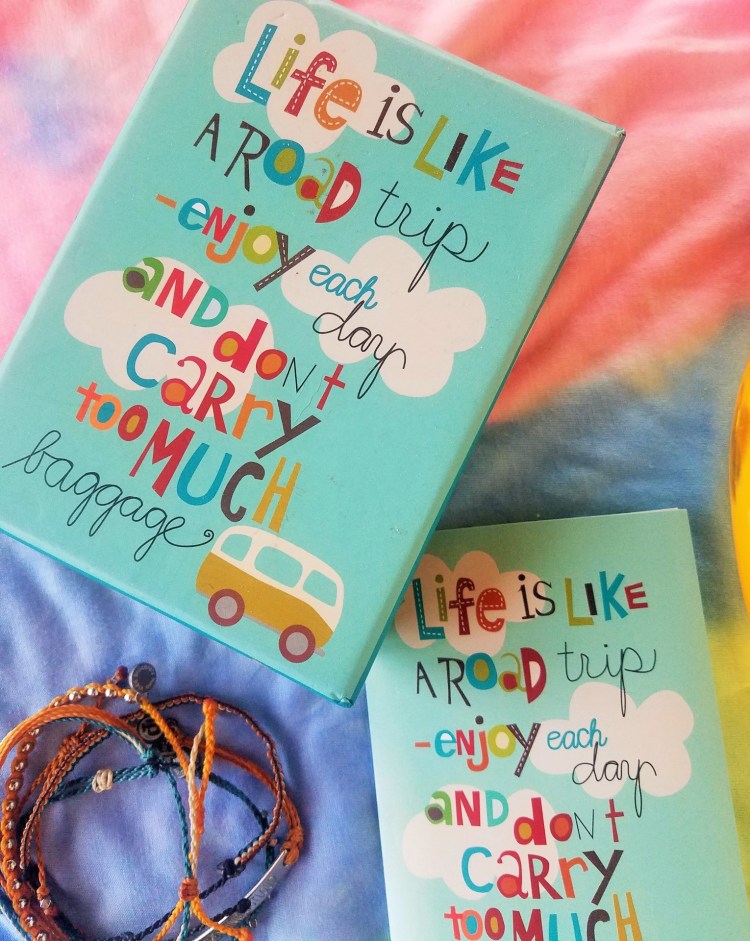 Life is LIKE
A ROAD trip
-enjoy each
day
AND don't
CARRY
too MUCH
baggage
Life is LIKE
A ROAD trip
-enjoy each
day
AND don't
CARRY
too MUCH